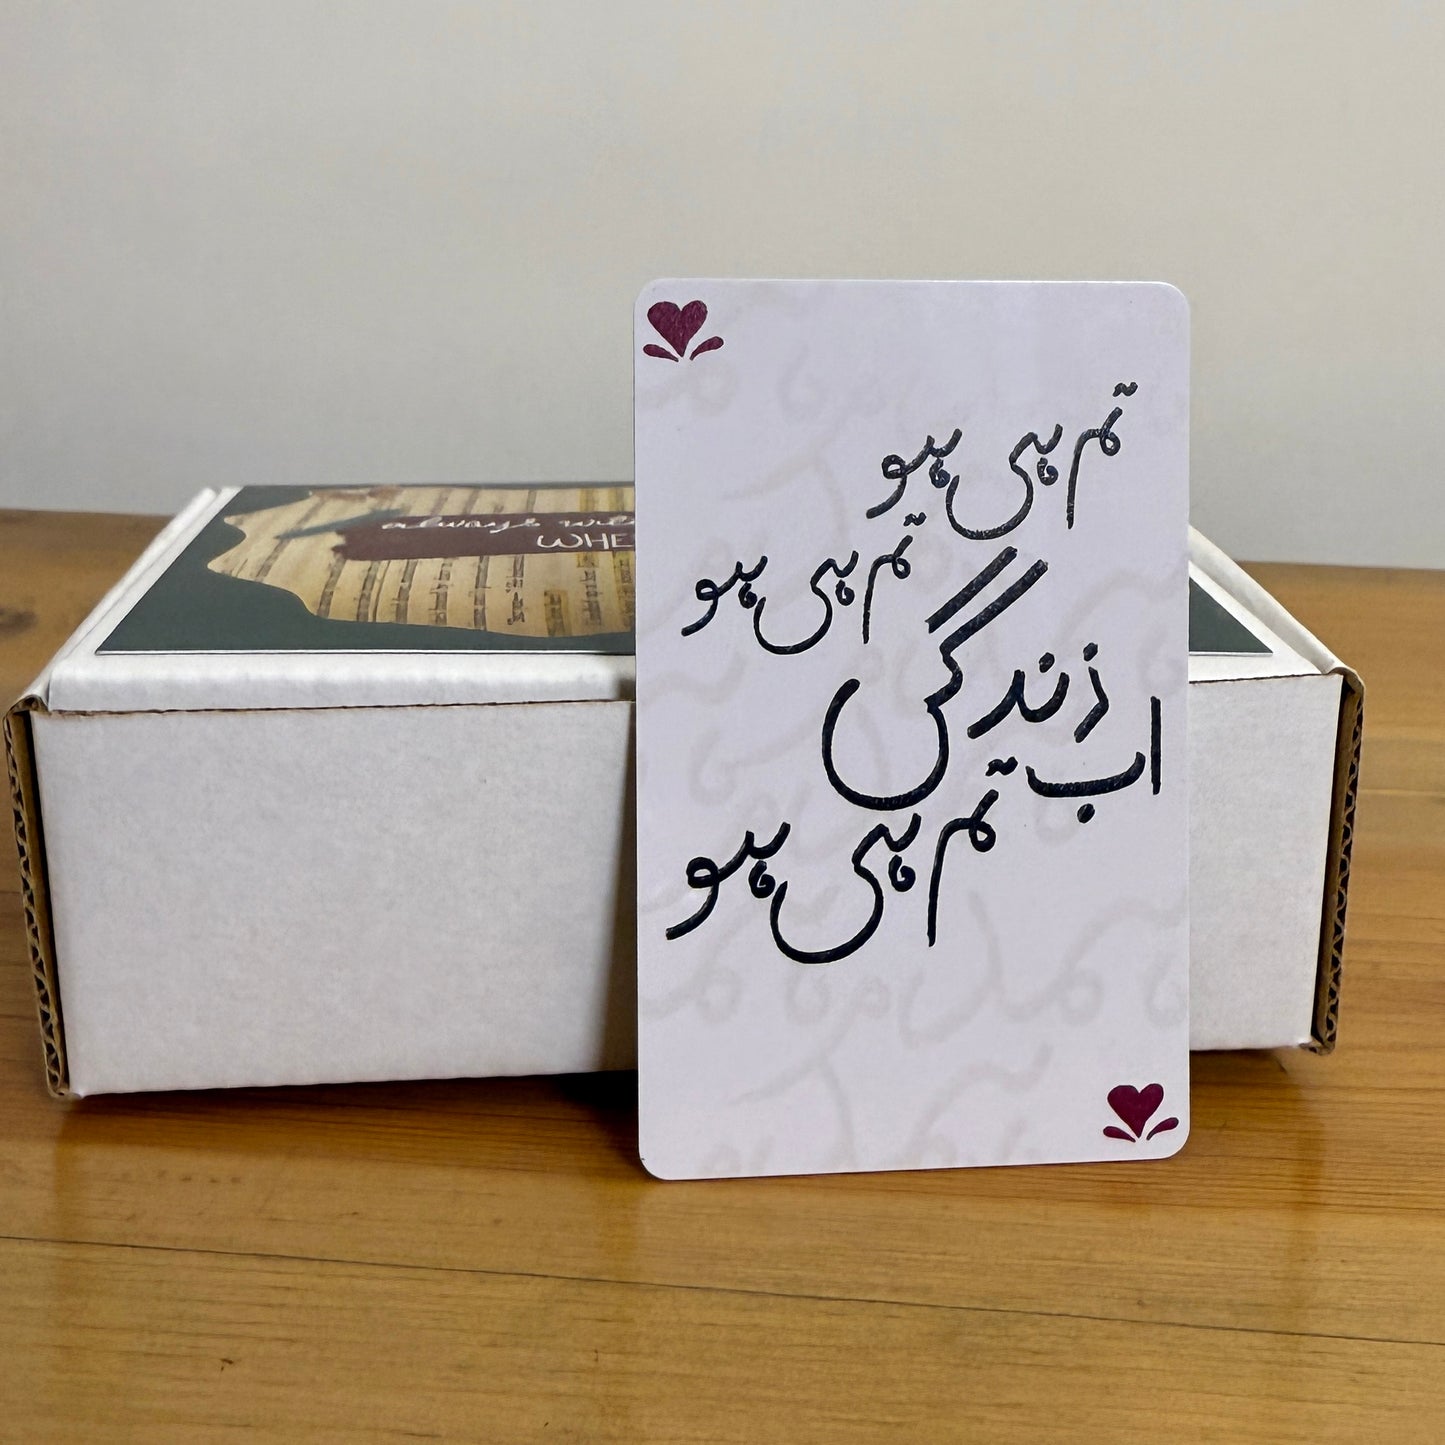 تم ہی ہو
تم ہی ہو
زندگی
اب
تم ہی ہو
always
WHE